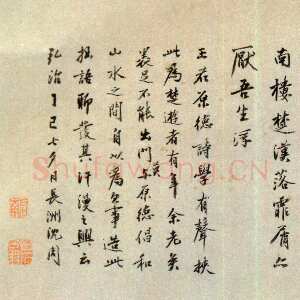 南樓楚漢落霏屑只
厭吾生浮
王君原德詩學有聲挾
此為楚遊者有年余老矣
裹足不能出門與原德倡和
山水之間自以為欠事造此
拙語聊發其汗漫之興云
弘治丁巳七夕日長洲沈周